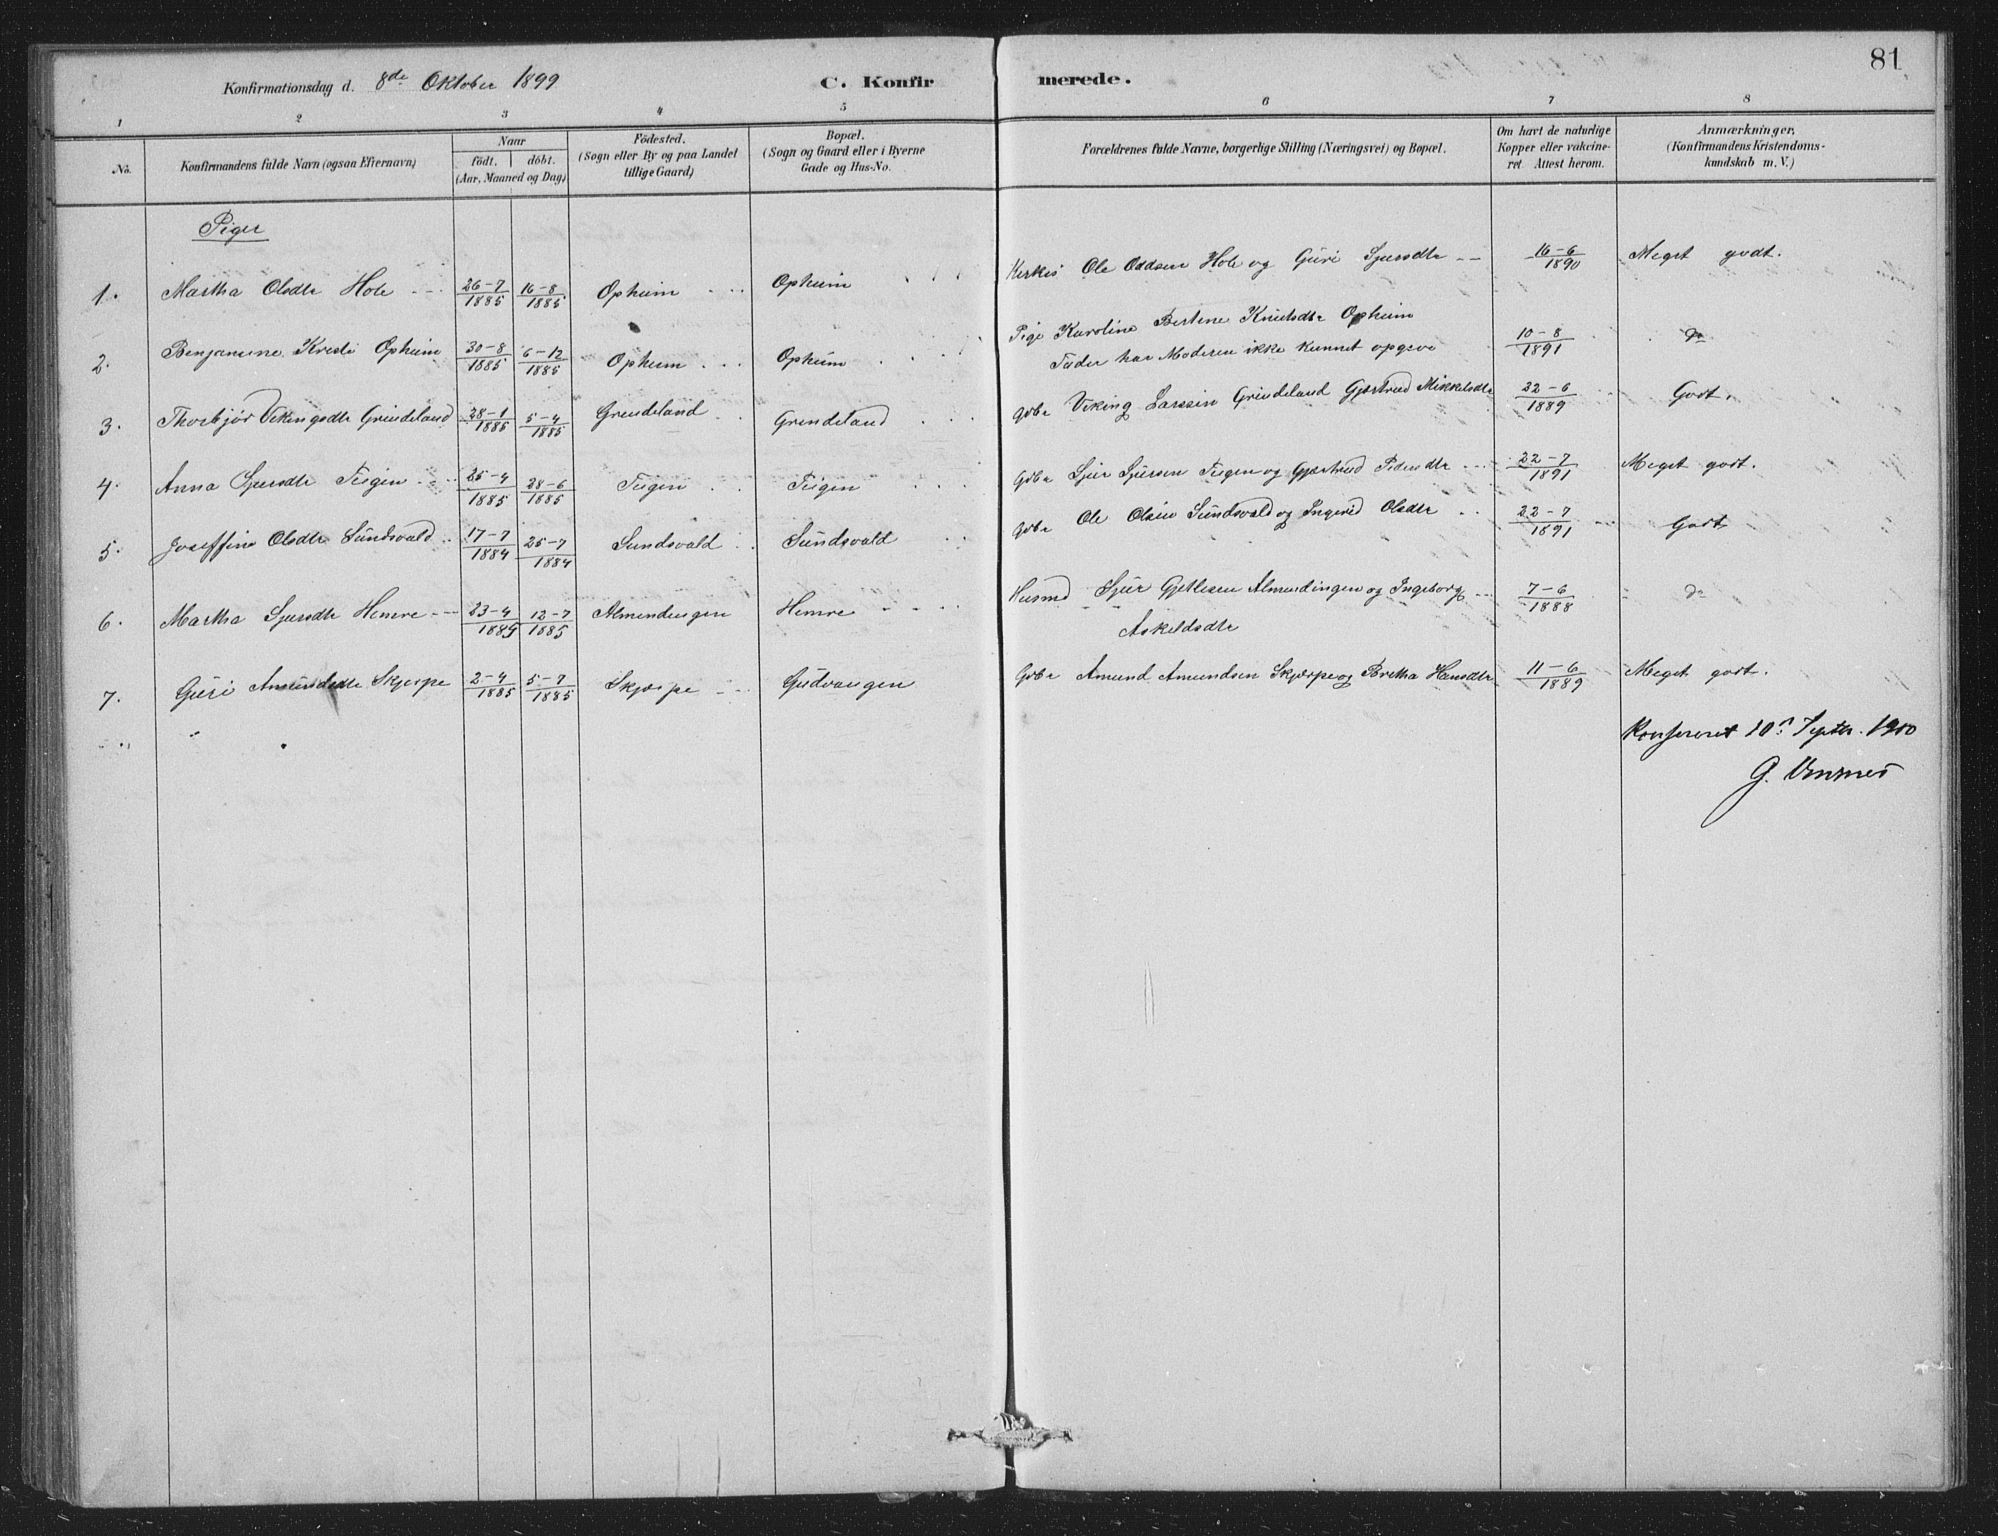 81
Konfirmationsdag d. 8de Oktober 1899
C. Konfirmerede.
1 2 3 4 5 6 7 8
No.
Konfirmandens fulde Navn (ogsaa Efternavn)
Naar
födt. döbt.
(Aar, Maaned og Dag)
Födested.
(Sogn eller By og paa Landet
tillige Gaard)
Bopæl.
(Sogn og Gaard eller i Byerne
Gade og Hus-No.
Forældrenes fulde Navne, borgerlige Stilling (Næringsvei) og Bopæl.
Om havt de naturlige
Kopper eller vakcine-
ret. Attest herom.
Anmærkninger,
(Konfirmandens Kristendoms-
kundskab m. V.)
Piger
1. Martha Olsdtr Hole 26-7/1885 16-8/1885 Opheim Opheim Ole Oddsen Hole og Guri Sjursdtr 16-6/1890 Meget godt.
2. Benjamine Kristi Opheim 30-8/1885 6-12/1885 Opheim Opheim Pige Karoline Bertine Knutsdtr Opheim 10-8/1891 do
Fader har Moderen ikke kunnet opgive
3. Thorbjør Vikingsdtr Grindeland 28-1/1885 5-4/1885 Grindeland Grindeland Gbr Viking Larssen Grindeland Gjertrud Mikkelsdtr 22-6/1889 Godt.
4. Anna Sjursdtr Tvigen 25-4/1885 28-6/1885 Tvigen Tvigen Gbr Sjur Sjursen Tvigen og Gjertrud Pedersdtr 22-7/1891 Meget godt.
5. Joseffine Olsdtr Sundsvald 17-7/1884 25-7/1884 Sundsvald Sundsvald Gbr Ole Olsen Sundsvald og Ingerid Olsdtr 22-7/1891 Godt
6. Martha Sjursdtr Hemre 23-4/1885 12-7/1885 Almendingen Hemre Husmd Sjur Gjetlesen Almendingen og Ingeborg 7-6/1888 do
Askeldsdtr
7. Guri Amundsdtr Skjerpe 2-4/1885 5-7/1885 Skjerpe Gudvangen Gbr Amund Amundsen Skjerpe og Bretha Hansdtr 11-6/1889 Meget godt.
Konfereret 10 Septr. 1900
G.